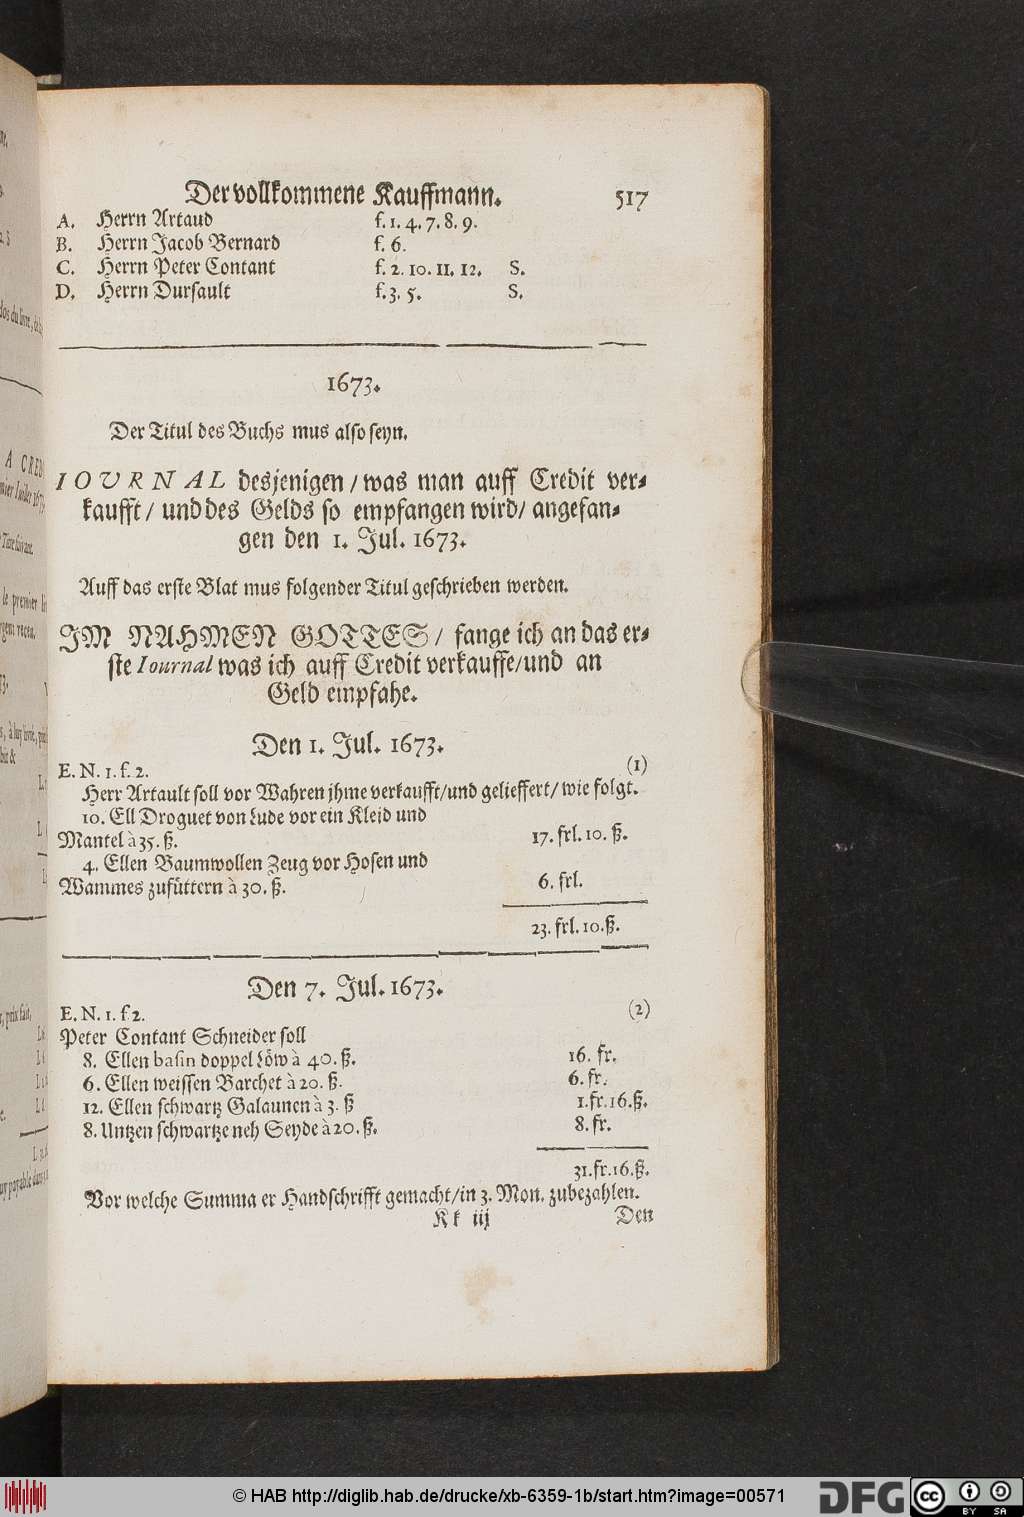 Der vollkommene Kauffmann. 517
A. Herrn Artaud f. 1. 4. 7. 8. 9.
B. Herrn Jacob Bernard f. 6.
C. Herrn Peter Contant f. 2. 10. 11. 12. S.
D. Herrn Dursault f. 3. 5. S.
1673.
Der Titul des Buchs mus also seyn.
IOURNAL desjenigen / was man auff Credit ver-
kaufft / und des Gelds so empfangen wird / angefan-
gen den 1. Jul. 1673.
Auff das erste Blat mus folgender Titul geschrieben werden.
IM NAHMEN GOTTES / fange ich an das er-
ste Iournal was ich auff Credit verkauffe / und an
Geld empfahe.
Den 1. Jul. 1673.
E. N. 1. f. 2. (1)
Herr Artault soll vor Wahren ihme verkaufft / und gelieffert / wie folgt.
10. Ell Droguet von Lude vor ein Kleid und
Mantel à 35. ß. 17. frl. 10. ß.
4. Ellen Baumwollen Zeug vor Hosen und
Wammes zufüttern à 30. ß. 6. frl.
23. frl. 10. ß.
Den 7. Jul. 1673.
E. N. 1. f 2. (2)
Peter Contant Schneider soll
8. Ellen basin doppel Löw à 40. ß. 16. fr.
6. Ellen weissen Barchet à 20. ß. 6. fr.
12. Ellen schwartz Galaunen à 3. ß 1. fr. 16. ß.
8. Untzen schwartze neh Seyde à 20. ß. 8. fr.
31. fr. 16. ß.
Vor welche Summa er Handschrifft gemacht / in 3. Mon. zubezahlen.
Kk iij Den
© HAB http://diglib.hab.de/drucke/xb-6359-1b/start.htm?image=00571
DFG
cc
BY SA